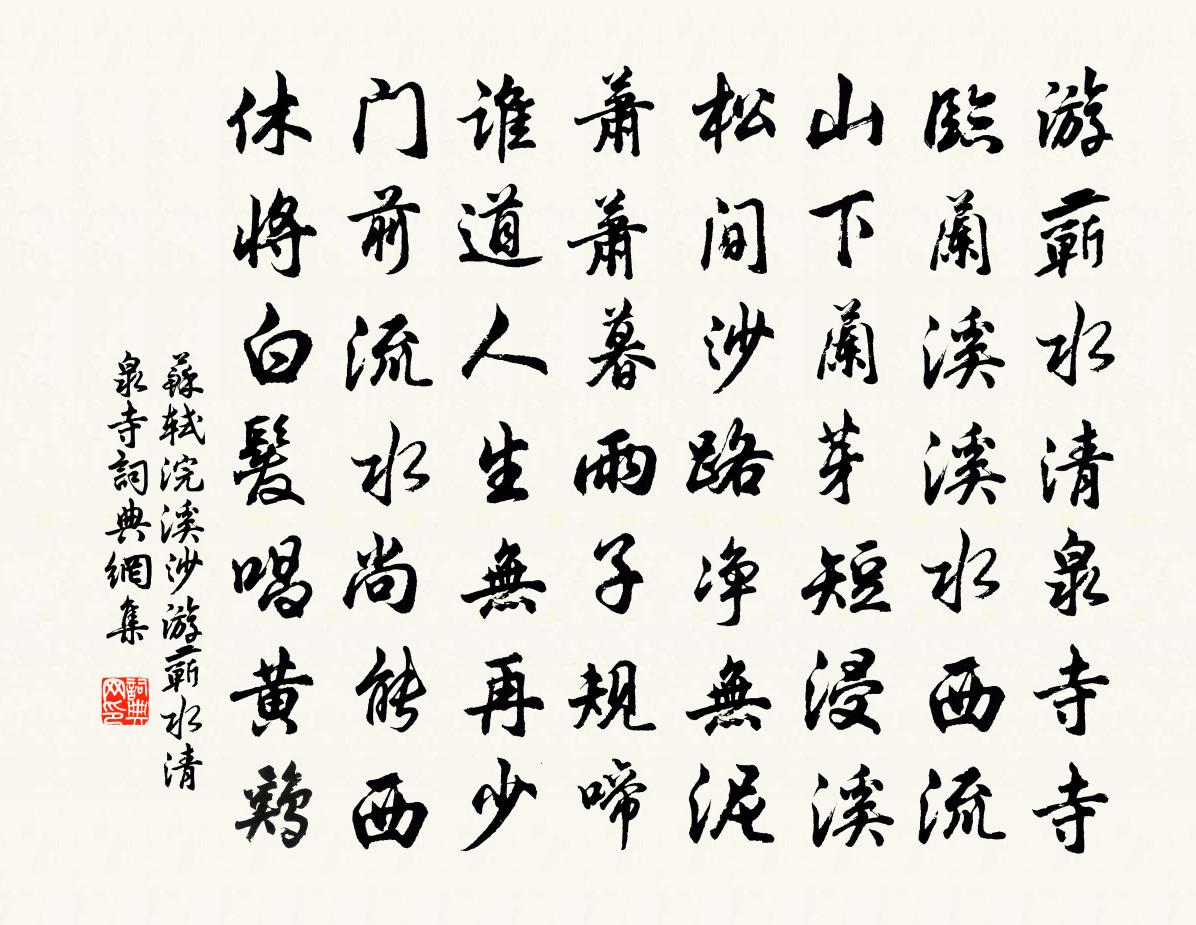 游蘄水清泉寺寺
臨蘭溪溪水西流
山下蘭芽短浸溪
松間沙路净無泥
蕭蕭暮雨子規啼
誰道人生無再少
门前流水尚能西
休將白髮唱黃鷄
蘇軾浣溪沙游蘄水清
泉寺詞典網集
詞典
网印